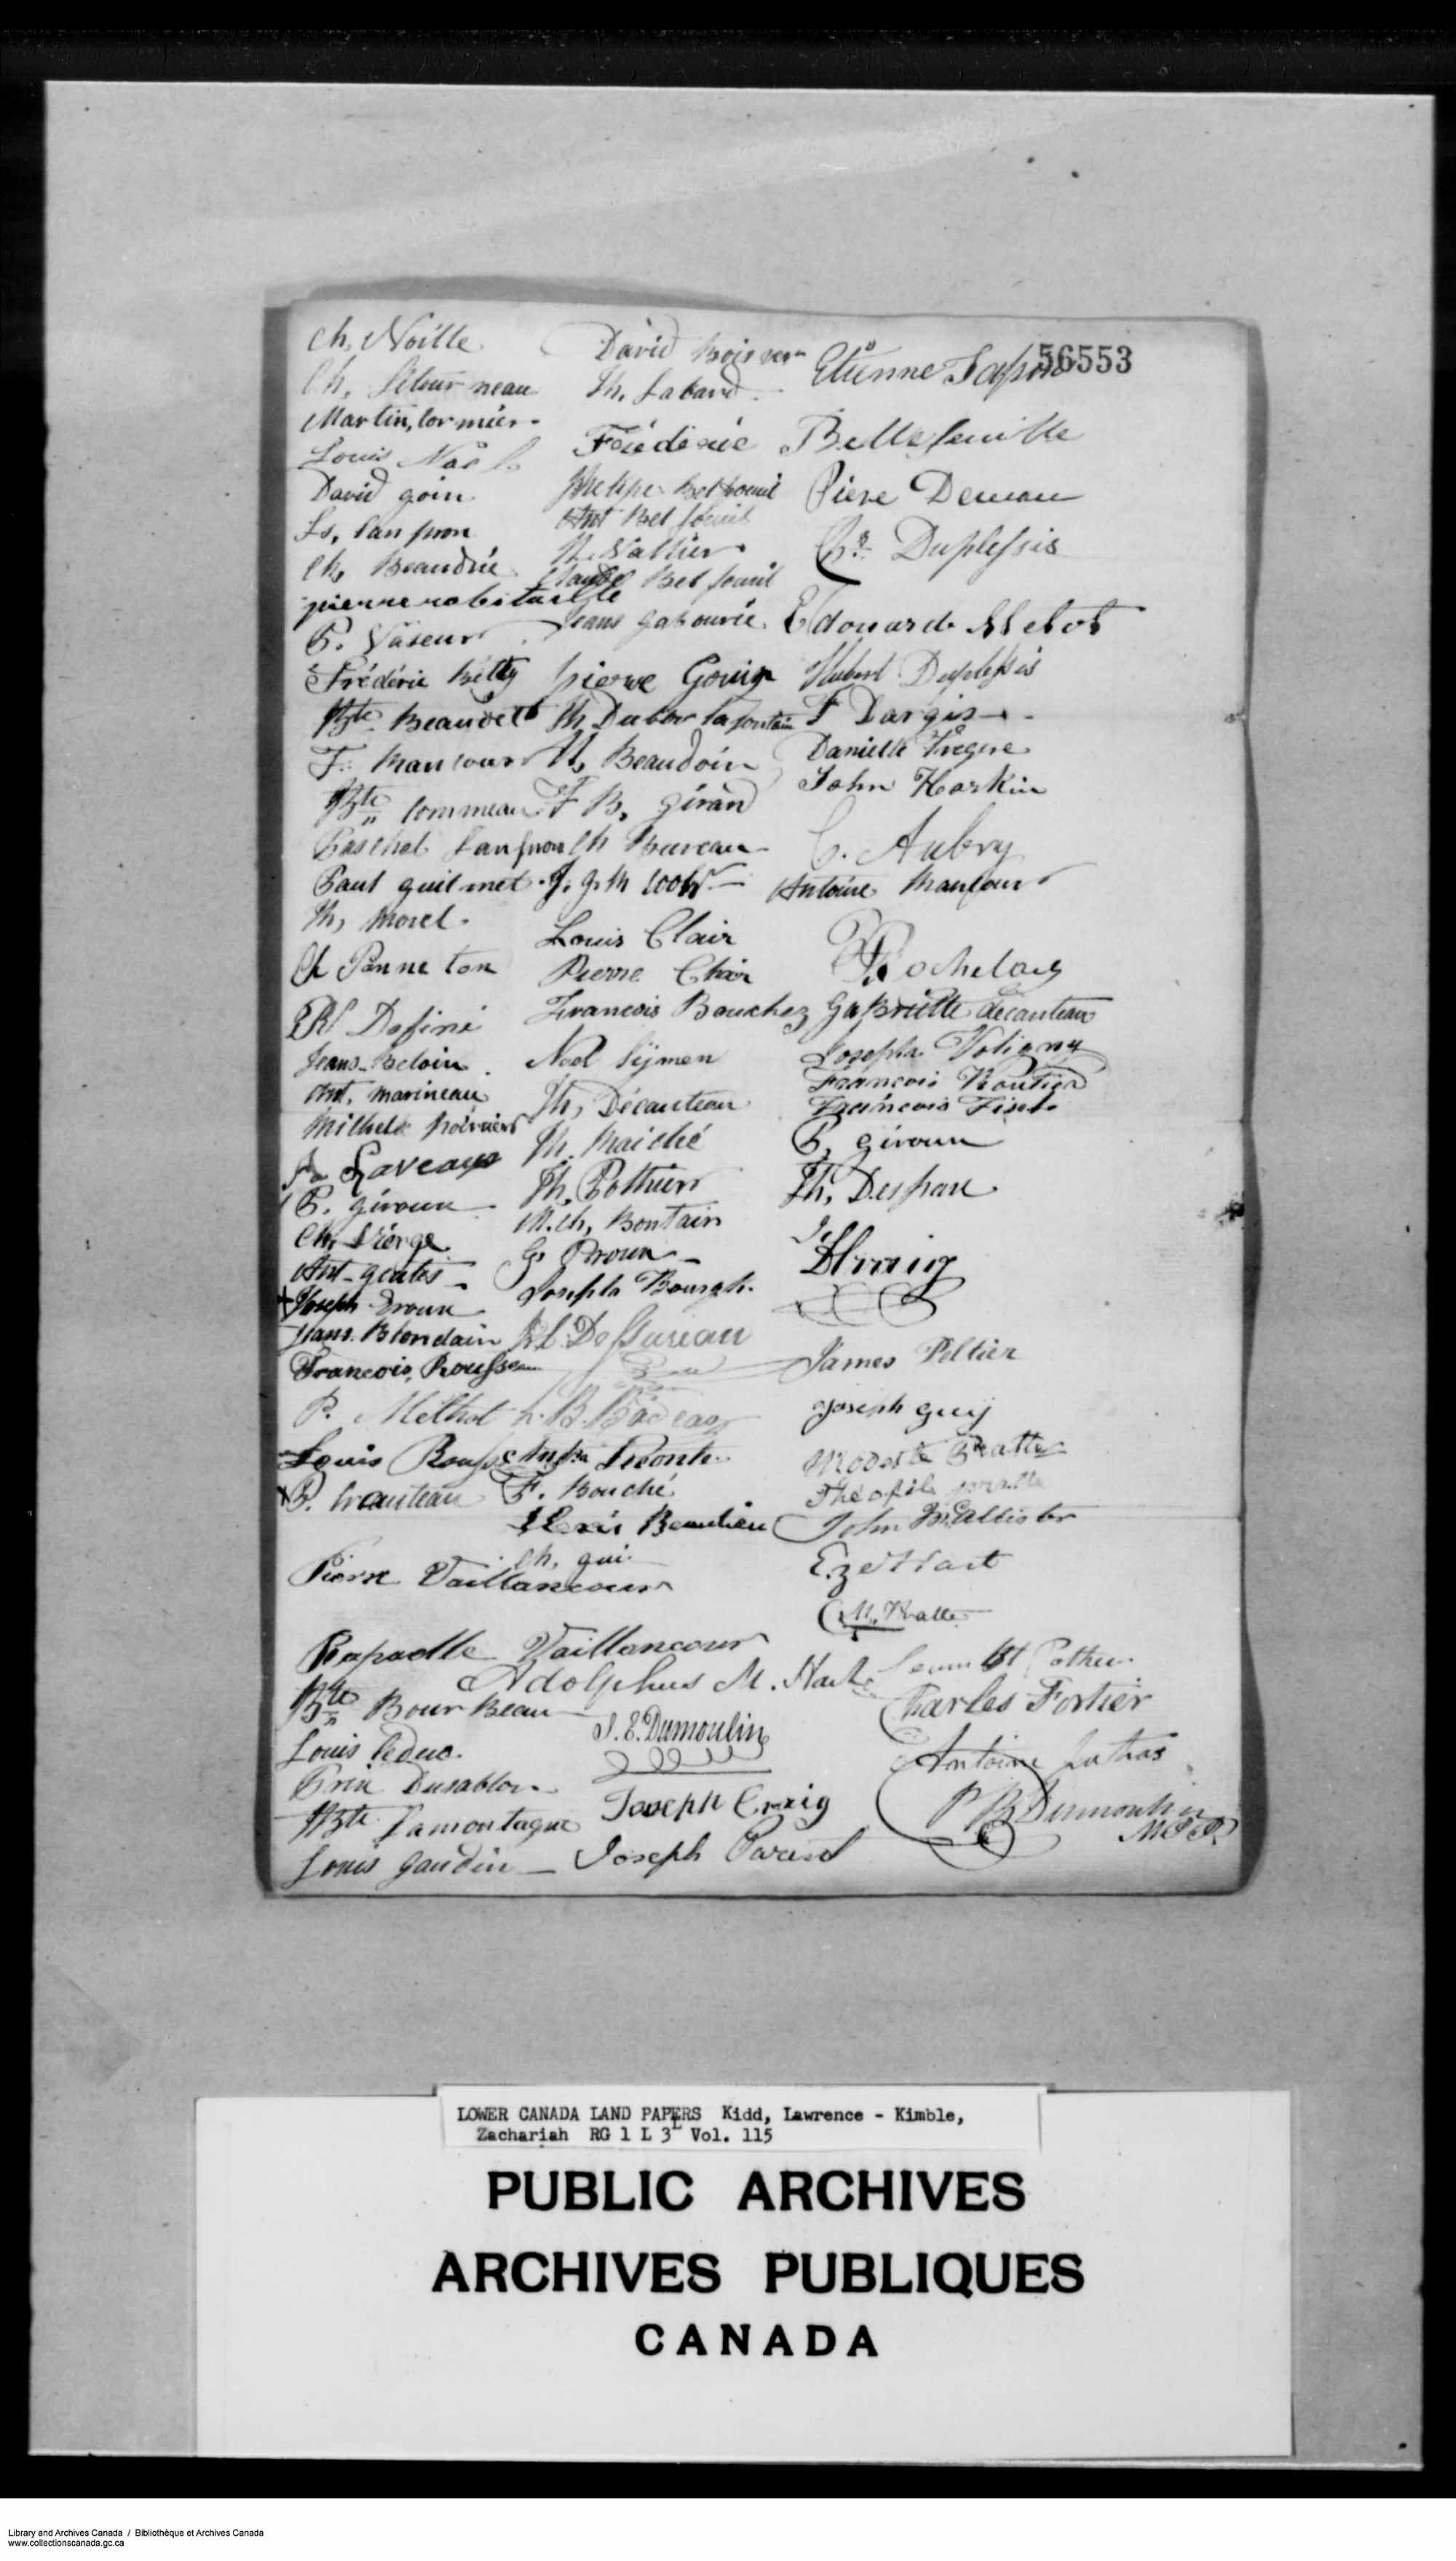 Ch, Noille
Ch, Letour neau
Martin, lormier
Louis Noël
David goin
Ls, Lanfron
Ch, Beaudrie
pierre robitaille
P. Vaseur
Frédéric Betty
Bte Beaudett
F. Mancour
Bte Commeau
Paschal Lanfron
Paul guilmet
Th, Morel
Ch Panneton
Jeans Beloin
Ant, marineau
Michele
Laveaux
P. giroux
Ch, Vierge
Ant gentes
Joseph Droux
Jans. Blondain
Francois, Rousseau
P. Methot
Louis
P. Crauteau
Pierre Vaillancour
Rapaelle Vaillancour
Bte Bourbeau
Louis leduc.
Prix Dusablon
Bte Lamontagne
Louis gaudin
David Boisver
Th. Labard
Frédéric
Phelipe Belfeuil
Ant Belfeuil
N. Vallier
Claude Belfeuil
Jeans gabourie
pierre Gouin
Th, Dubor lafontain
Beaudoin
F B, girard
Ch Bureau
J. g. M
Louis Clair
Pierre Clair
Francois Bouchez
Noel Sijmen
Th, Décauteau
Th. Maiché
Th, Pothier
M. ch, Bontain
G. Proux
Joseph Bourgh.
L. B.
F. Bouché
Alexis Beaulieu
Ch, gui
Adolphus M. Hart
S. E. Dumoulin
Joseph Craig
Joseph Parent
Etienne
56553
Bellefeuille
Piere Deveau
Chs. Duplessis
Edouard Metot
Hubert Duplessis
F Dargis
Danielle
John Harkin
C. Aubry
Antoine Mancour
Rochelau
Gabrielle decauteau
Joseph Voligny
Francois Routier
Francois
P, giroux
Th, Despau
James Peltier
Joseph guij
Modeste Pratte
Théofile pratte
John McAllister
Eze Hart
M. Pratte
Charles Fortier
Antoine Lutras
P B Dumoulin
MPP.
LOWER CANADA LAND PAPERS Kidd, Lawrence - Kimble,
Zachariah RG 1 L 3L Vol. 115
PUBLIC ARCHIVES
ARCHIVES PUBLIQUES
CANADA
Library and Archives Canada / Bibliothèque et Archives Canada
www.collectionscanada.gc.ca